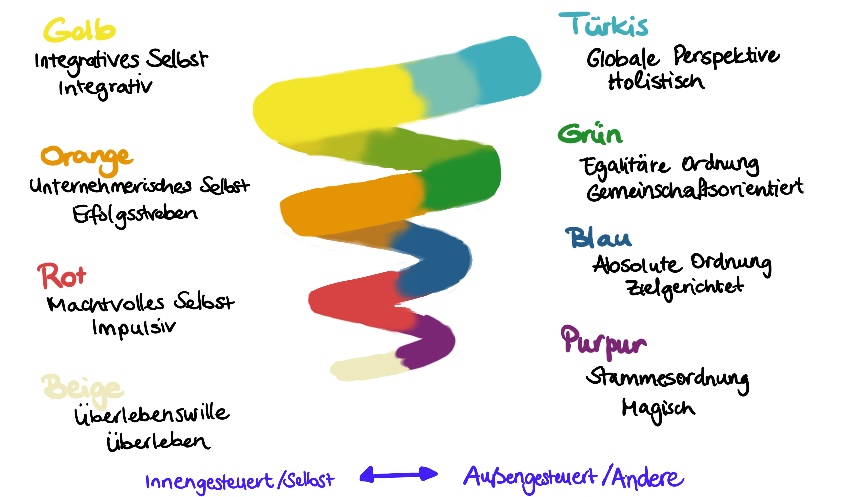 Gelb
Integratives Selbst
Integrativ
Orange
Unternehmerisches Selbst
Erfolgsstreben
Rot
Machtvolles Selbst
Impulsiv
Beige
Überlebenswille
Überleben
Türkis
Globale Perspektive
Holistisch
Grün
Egalitäre Ordnung
Gemeinschaftsorientiert
Blau
Absolute Ordnung
Zielgerichtet
Purpur
Stammesordnung
Magisch
Innengesteuert/Selbst
Außengesteuert/Andere